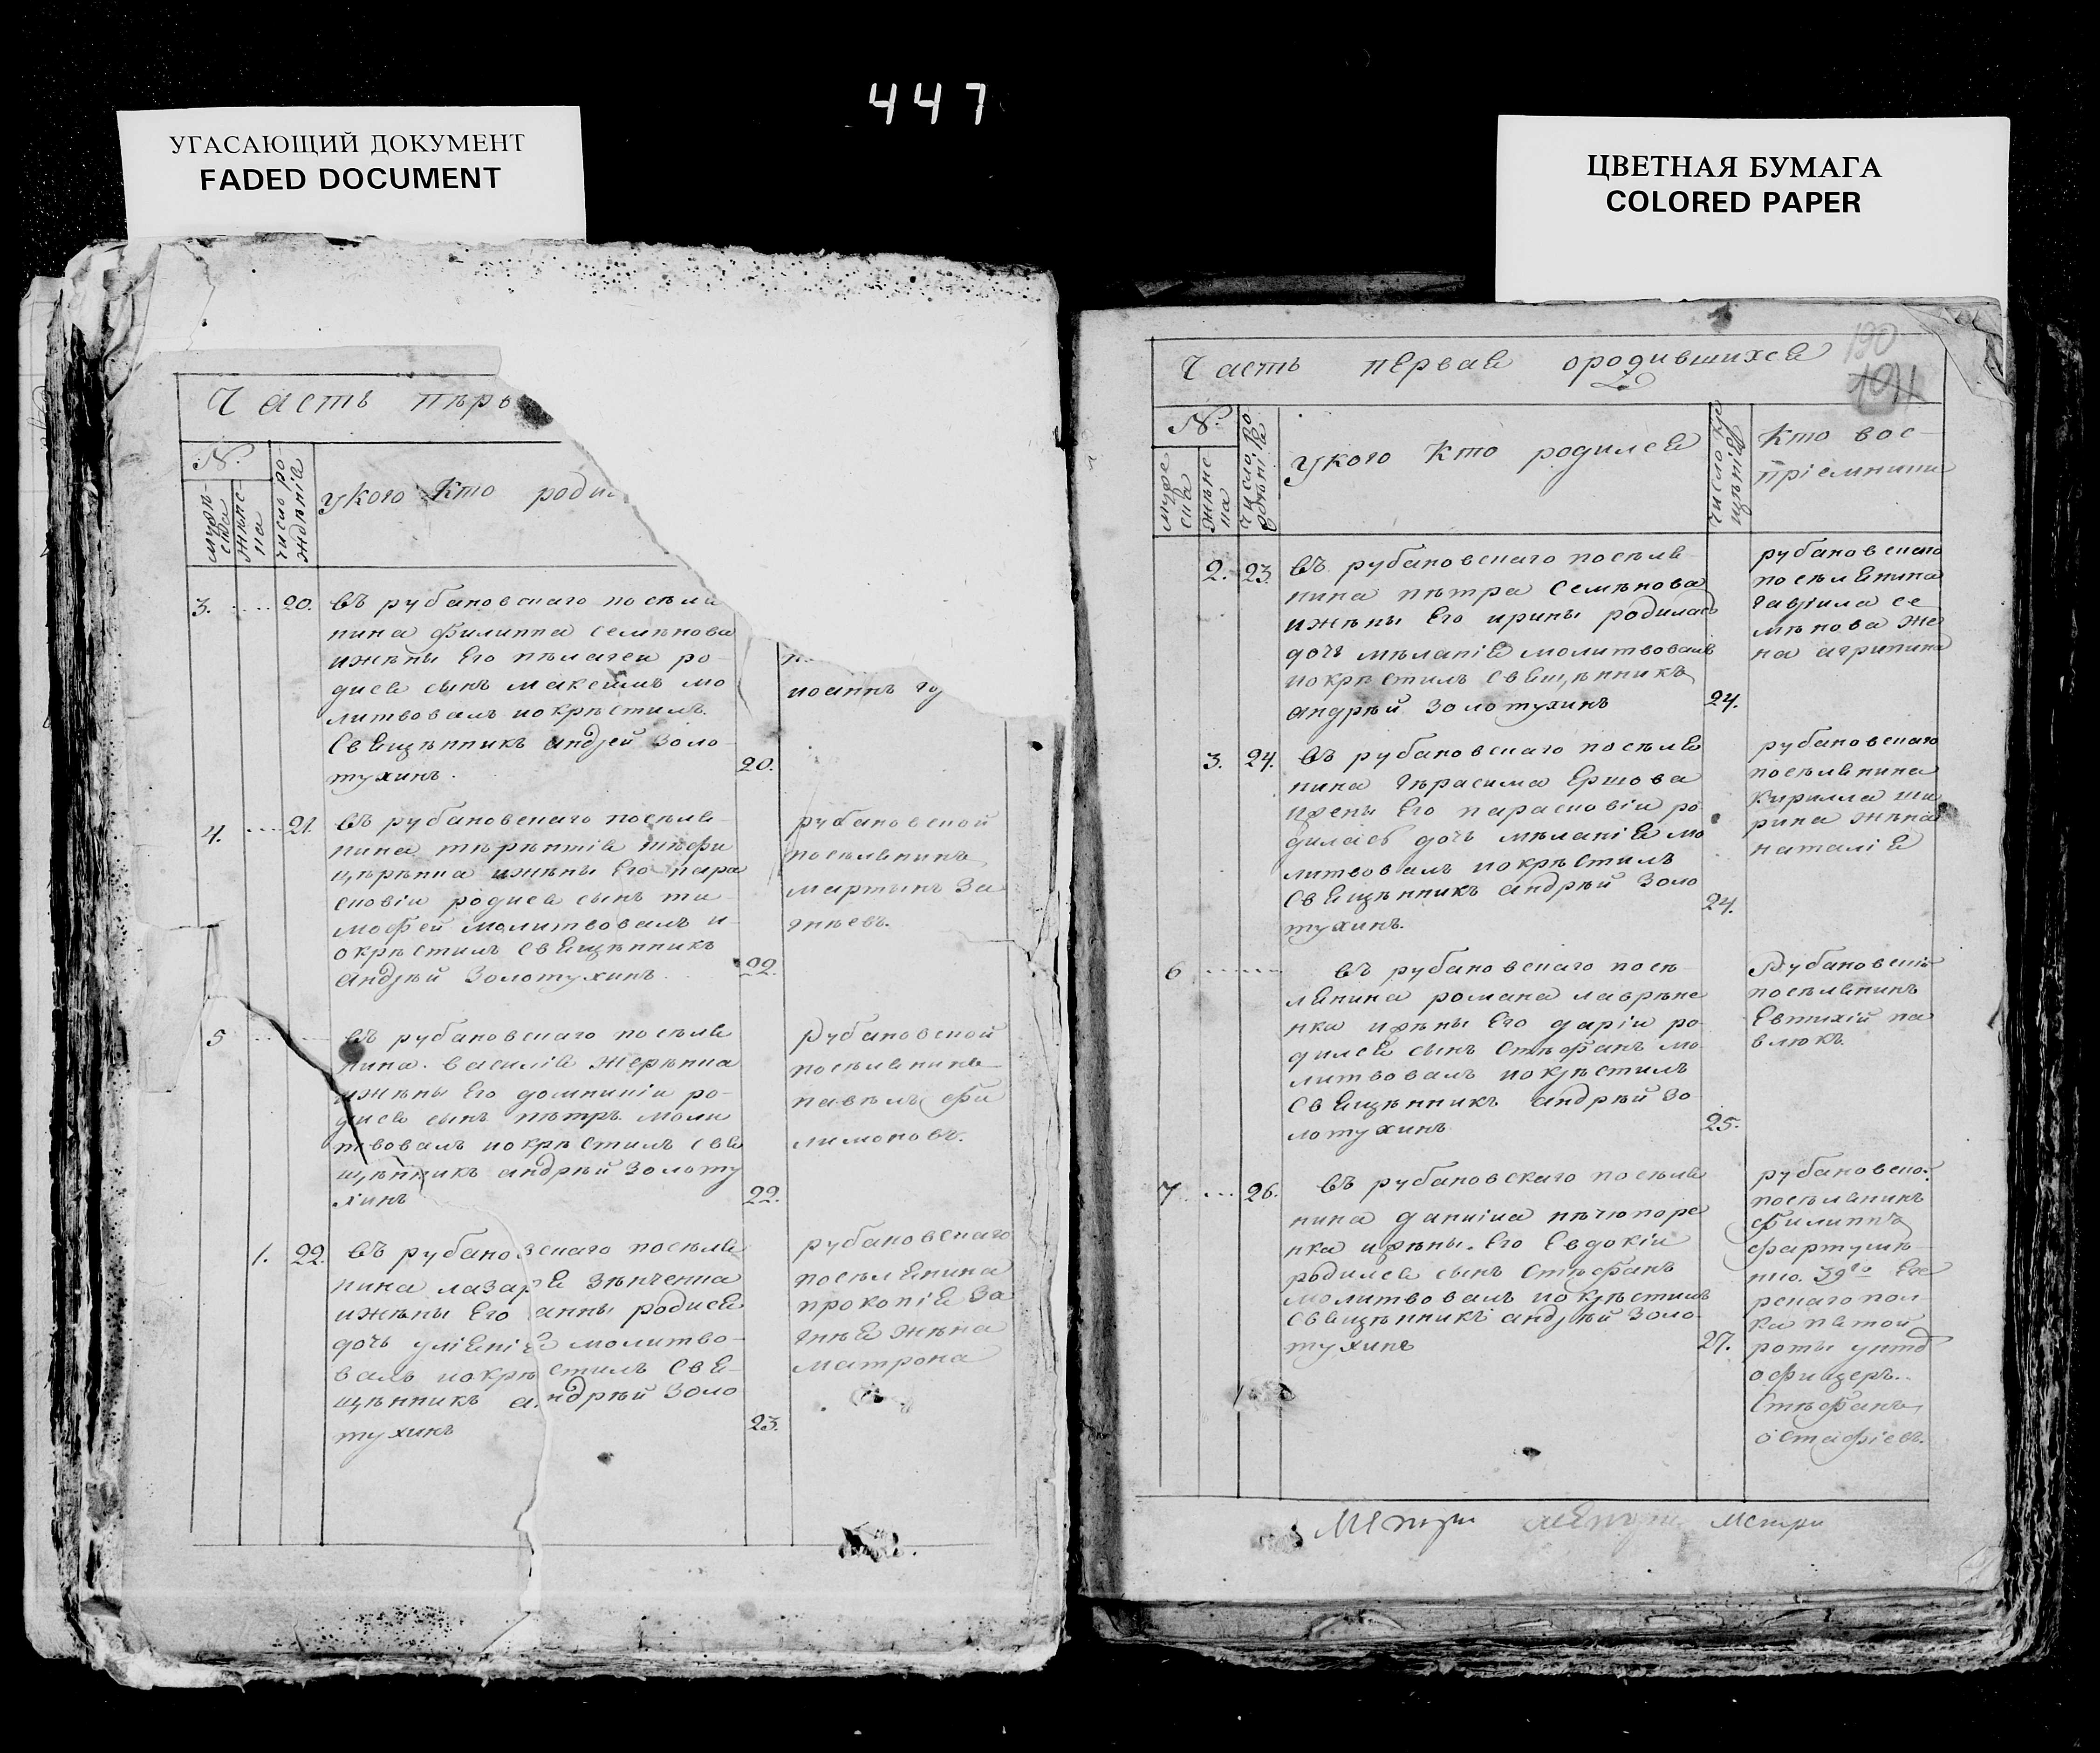 447
УГАСАЮЩИЙ ДОКУМЕНТ
FADED DOCUMENT
Часть пѣрв
№.
мужѣ-
ска
жѣнс-
на
число ро-
ждѣнiя
укого Кто роди
3. .... 20. въ рубановскаго посѣля
нина филиппа семѣнова
ижѣны Его пѣлагеи ро-
дися сынъ максимъ мо
литвовалъ иокрѣстилъ
СвЕщѣнникъ андрей Золо-
тухинъ.
20.
иоаннъ гу
4. .... 21. въ рубановскаго посѣля-
нина тѣрѣнтiя
ижѣны Его пара
сковiи родися сынъ ти-
мофей молитвовалъ и-
окрѣстилъ свЕщѣнникъ
андрѣй Золотухинъ
22.
рубановской
посѣлянинъ
мартынъ За
гнѣевъ.
5 въ рубановскаго посѣля
нина василiя Жерѣнна
ижѣны Его домникiи ро-
дися сынъ пѣтръ моли
твовалъ иокрѣстилъ свя
щѣнникъ андрѣй Золоту
хинъ
22.
Рубановской
посѣлянинъ
павѣлъ фи
лимоновъ.
1. 22. въ рубановскаго посѣля
нина лазаря Зѣнченка
ижѣны Его анны родися
дочь улiЕнiя молитво-
валъ иокрѣстилъ свЕ-
щѣнникъ андрѣй Золо
тухинъ
23.
рубановскаго
посѣлЕнина
прокопiЕ За
гнѣЕ жѣна
матрона
ЦВЕТНАЯ БУМАГА
COLORED PAPER
190
Часть пЕрвая ородившихся
№.
муже
ска
жѣнс
на
число ро
ждѣнiя
укого Кто родился
число кре
щѣнiя
Кто вос-
прiемники
2. 23. въ рубановскаго посѣля-
нина пѣтра Семѣнова
ижѣны Его ирины родилась
дочь мѣланiЕ молитвовалъ
иокрѣстилъ свЕщѣнникъ
андрѣй Золотухинъ
24.
рубановскаго
посѣлЕнина
гаврiила се
мѣнова же
на агрипина
3. 24. въ рубановскаго посѣля
нина гѣрасима Ершова
ижены Его парасковiи ро
дилась дочь мѣланiЕ мо
литвовалъ иокрѣстилъ
СвЕщѣнникъ андрѣй Золо
тухинъ.
24.
рубановскаго
посѣлянина
Кирилла ши
рина жѣна
наталiЕ
6 въ рубановскаго посѣ-
лЕнина романа лаврѣне
нка ижѣны Его дарiи ро-
дился сынъ Стѣфанъ мо-
литвовалъ иокрѣстилъ
СвЕщѣнникъ андрѣй Зо
лотухинъ
25.
Рубановскiй
посѣлянинъ
Евтихiй па
влюкъ.
7 ... 26. въ рубановскаго посѣля
нина данiила нѣчюпоре
нка ижѣны Его Евдокiи
родился сынъ Стѣфанъ
молитвовалъ иокрѣстилъ
СвЕщѣнникъ андрѣй Золо-
тухинъ
27.
рубановской
посѣлянинъ
филиппъ
39го Еге
рскаго пол
ка пятой
роты унтд
офицеръ.
Стѣфанъ
остафiевъ.